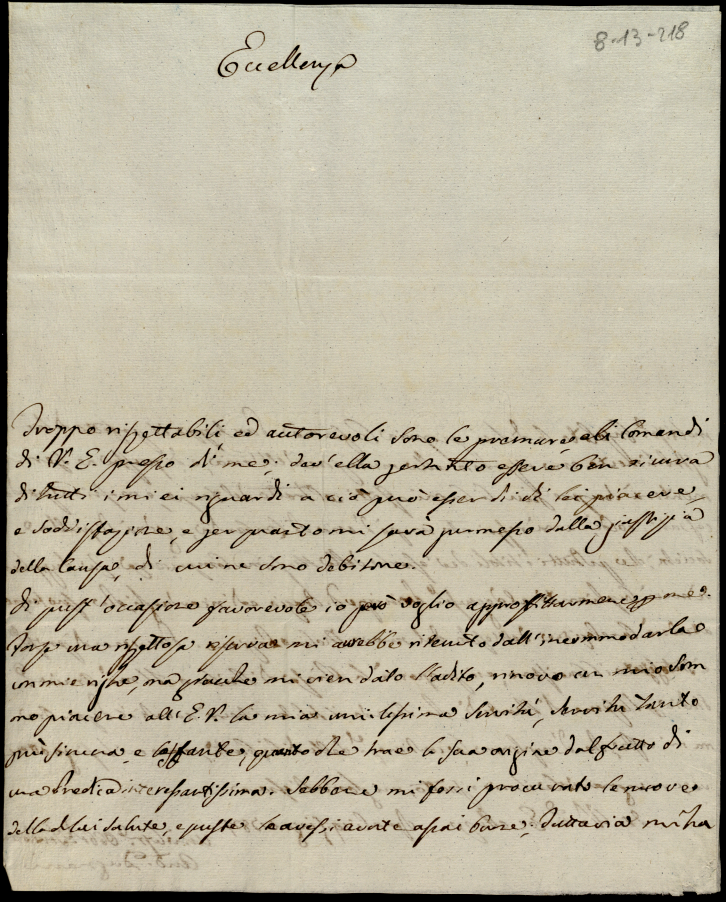 8-13-218
Eccellenza
Troppo rispettabili, ed autorevoli sono le premure, ed i Comandi
di V. E. presso di me; dev' ella pertanto essere ben sicura
di tutti i miei riguardi a ciò può esser di di lei piacere
e soddisfazione, e per quanto mi sarà permesso dalla giustizia
della Causa, di cui ne sono debitore.
Di quest' occasione favorevole io però voglio approffittarmene per me.
Forse una rispettosa riserva mi avrebbe ritenuto dall' incommodarla
con mie righe, ma giacchè mi vien dato l'adito, rinovo con mio som
mo piacere all' E. V. la mia umilissima servitù, servitù tanto
più sincera, e costante, quanto che trae la sua origine dal frutto di
una Predica interessantissima. Sebbene mi fossi procurato le nuove
della di lei salute, e queste le avessi avute assai buone; tuttavia mi ha